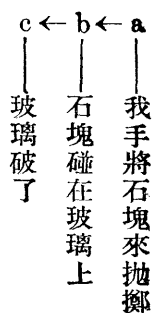 c←b←a
我手將石塊來拋擲
石塊碰在玻璃上
玻璃破了